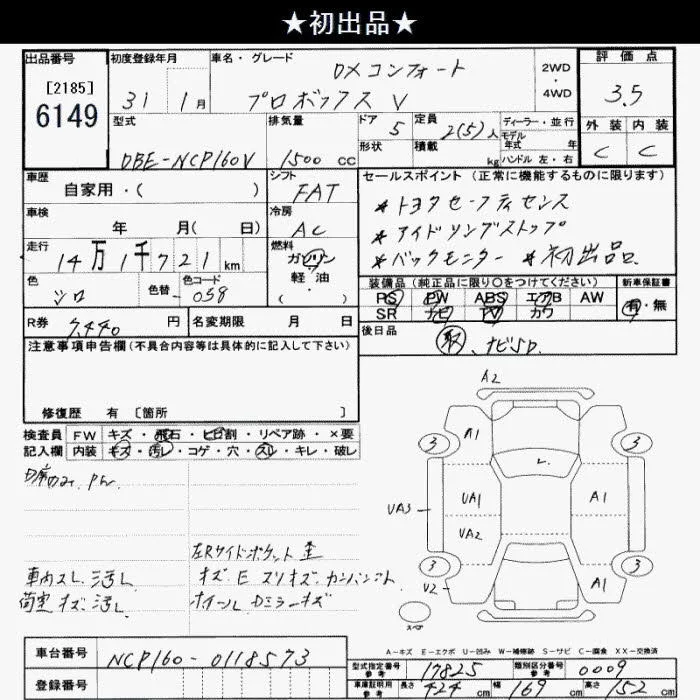 ★初出品★
出品番号 初度登録年月 車名・グレード 評価点
[2185]
6149
31 1月
DXコンフォート
プロボックスV
2WD・4WD
3.5
外装 内装
C C
型式 排気量 ドア 定員 ディーラー・並行
DBE-NCP160V 1500 CC 5 2(5)人
モデル年式 年
形状 積載 kg ハンドル 左・右
車歴 シフト セールスポイント (正常に機能するものに限ります)
自家用・( )
FAT
＊トヨタセーフティセンス
＊アイドリングストップ
＊バックモニター ＊初出品。
車検 冷房
年 月(日) AC
走行 燃料
14万1千721km
ガソリン
軽油
( ・ )
色 色替 色コード
シロ - 058
装備品 (純正品に限り○をつけてください) 新車保証書
PS PW ABS エアB AW
SR ナビ TV カワ
有・無
R券 名変期限 月 日
7,440円
後日品
取、ナビSD.
注意事項申告欄(不具合内容等は具体的に記入して下さい)
修復歴 有 [箇所 ]
検査員 FW キズ・飛石・ヒビ割・リペア跡・×要
記入欄 内装 キズ・汚レ・コゲ・穴・スレ・キレ・破レ
左Rサイドポケット
車内スレ 汚レ
キズ E スリキズ
荷室 キズ 汚レ
ホイール Dミラーキズ
A2
3 A1 3
UA1 A1
UA3
UA2
3 3
V2 A1
スペア
A-キズ E-エクボ U-凹み W-補修跡 S-サビ C-腐食 XX-交換済
車台番号 NCP160-0118573
登録番号
型式指定番号 参考 17825 類別区分番号 参考 0009
車庫証明用 参考 長さ 424cm 幅 169cm 高さ 152cm